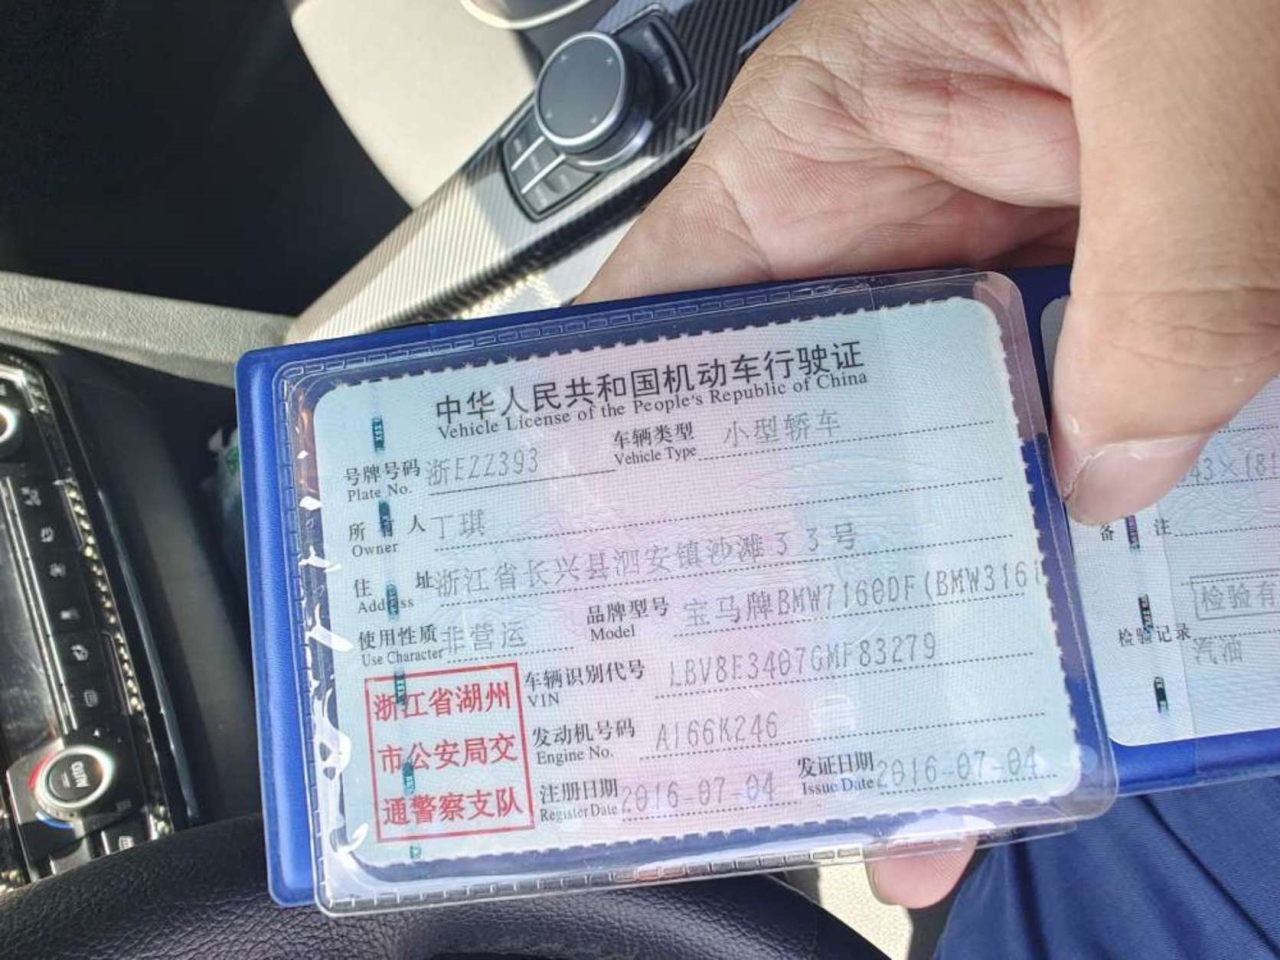 中华人民共和国机动车行驶证
Vehicle License of the People's Republic of China
号牌号码 浙EZZ393 车辆类型 小型轿车
Plate No. Vehicle Type
所有人 丁琪
Owner
住址 浙江省长兴县泗安镇沙滩33号
Address
使用性质 非营运 品牌型号 宝马牌BMW7160DF(BMW316i
Use Character Model
浙江省湖州
市公安局交
通警察支队
车辆识别代号 LBV8E3407GMF83279
VIN
发动机号码 A166K246
Engine No.
注册日期 2016-07-04 发证日期 2016-07-04
Register Date Issue Date
43×181
备注
检验有
检验记录
汽油